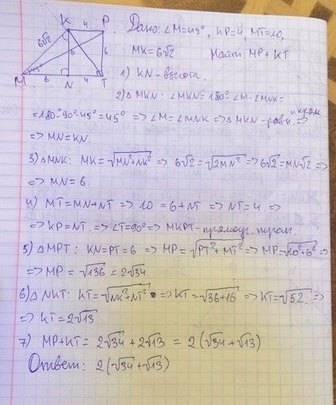 K 4 P
6√2
M N T
Дано: ∠M=45°, KP=4, MT=10,
MK=6√2 Найти MP+KT
1) KN-высот.
2) △MKN: ∠MKN=180°-∠M-∠MNK=
=180°-90°-45°=45° => ∠M=∠MNK => △MKN-равн. =>
=> MN=KN.
3) △MNK: MK=√MN²+NK² => 6√2=√2MN² => 6√2=MN√2 =>
=> MN=6.
4) MT=MN+NT => 10=6+NT => NT=4 =>
=> KP=NT => ∠T=90° => MKPT- прямоуг. трап.
5) △MPT: KN=PT=6 => MP=√PT²+MT² => MP=√10²+6² =>
=> MP=√136=2√34
6) △NKT: KT=√NK²+NT² => KT=√36+16 => KT=√52 =>
=> KT=2√13
7) MP+KT=2√34+2√13=2(√34+√13)
Ответ: 2(√34+√13)